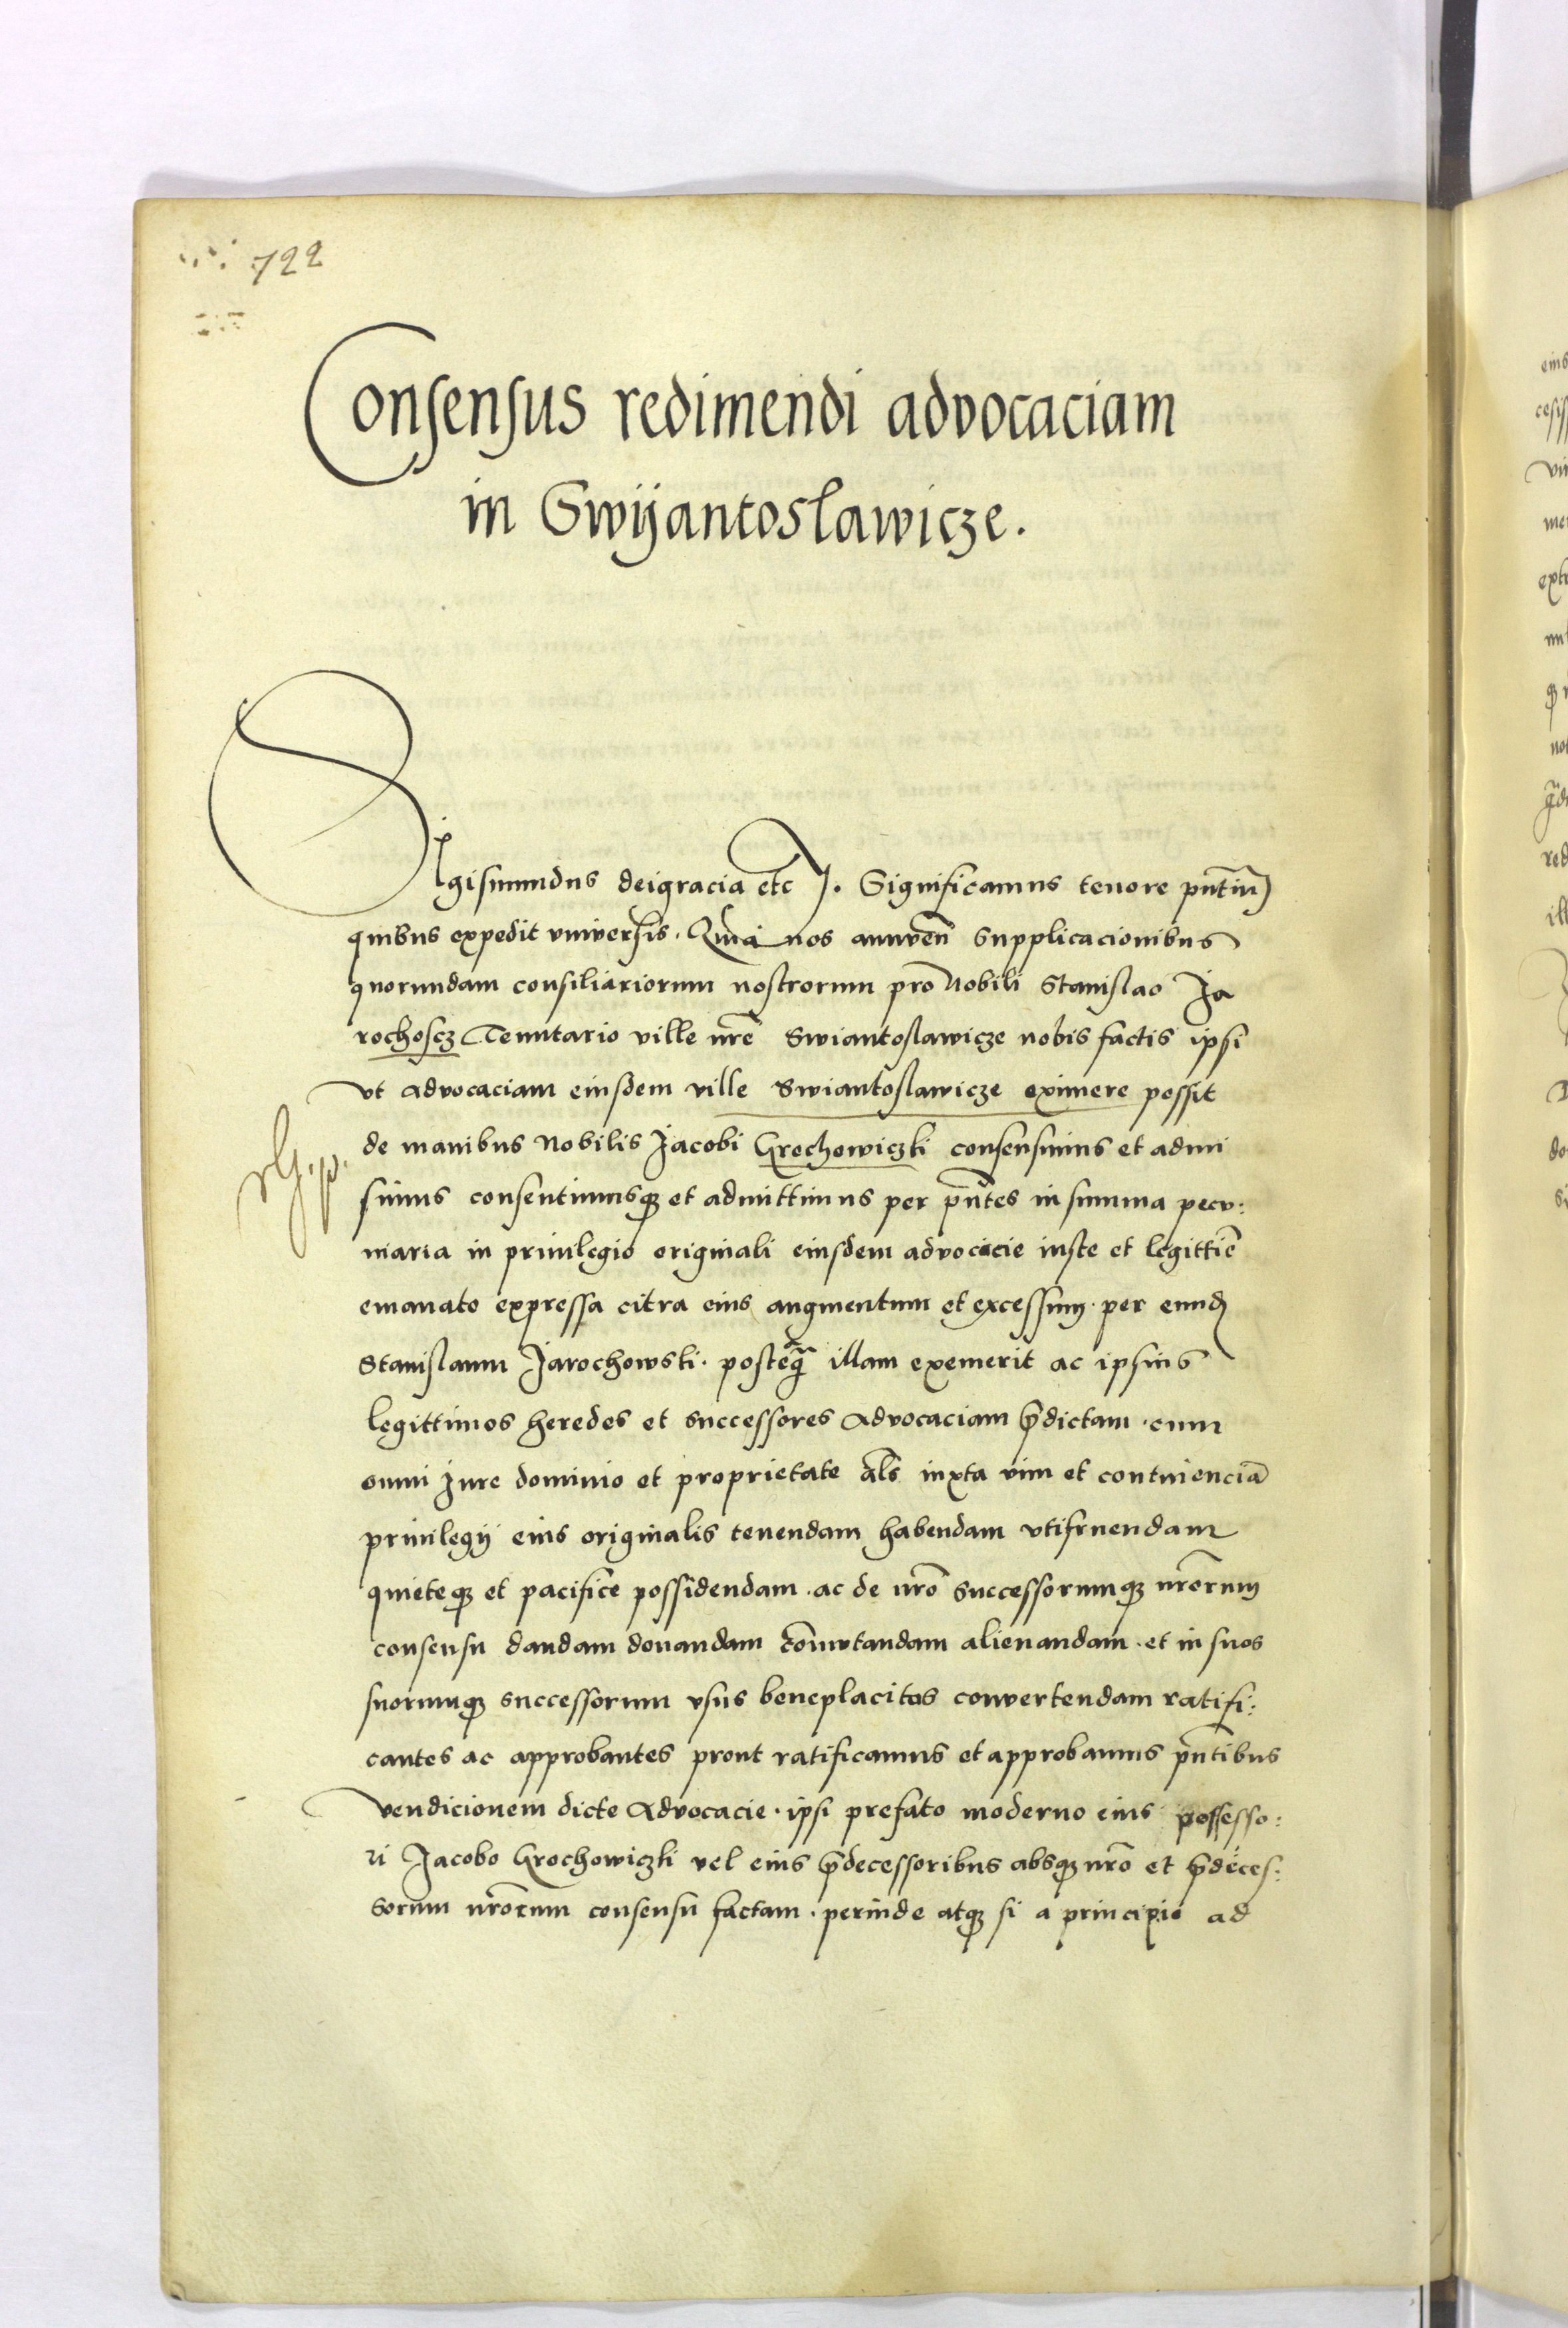 722
Consensus redimendi advocaciam
in Swÿantoslawicze.
Sigismundus deigracia etc. Significamus tenore pn̄tiu
quibus expedit vniversis. Quia nos annuen̄ supplicacionibus
quorundam consiliariorum nostrorum pro Nobili Stanislao Ja
rochoscz Tenutario ville nr̄e Swiantoslawicze nobis factis ipsi
vt advocaciam eiusdem ville Swiantoslawicze eximere possit
de manibus Nobilis Jacobi Grochowiczki consensimus et admi
simus consentimusqȝ et admittimus per pn̄tes in summa pecu:
niaria in privilegio originali eiusdem advocacie iuste et legittīe
emanato expressa citra eius augmentum et excessum. per eund
Stanislaum Jarochowski. posteaq̄ illam exemerit ac ipsius
legittimos heredes et successores Advocaciam p̄dictam. cum
omni Jure dominio et proprietate al̄s iuxta vim et continenciā
privilegij eius originalis tenendam habendam vtifruendam
quieteqȝ et pacifice possidendam. ac de nr̄o successorumqȝ nr̄orum
consensu dandam donandam com̄utandam alienandam. et in suos
suorumqȝ successorum vsus beneplacitos convertendam ratifi:
cantes ac approbantes prout ratificamus et approbamus pn̄tibus
vendicionem dicte Advocacie. ipsi prefato moderno eius possesso:
ri Jacobo Grochowiczki vel eius p̄decessoribus absqȝ nr̄o et p̄deces:
sorum nr̄orum consensu factam. perinde atqȝ si a principio ad